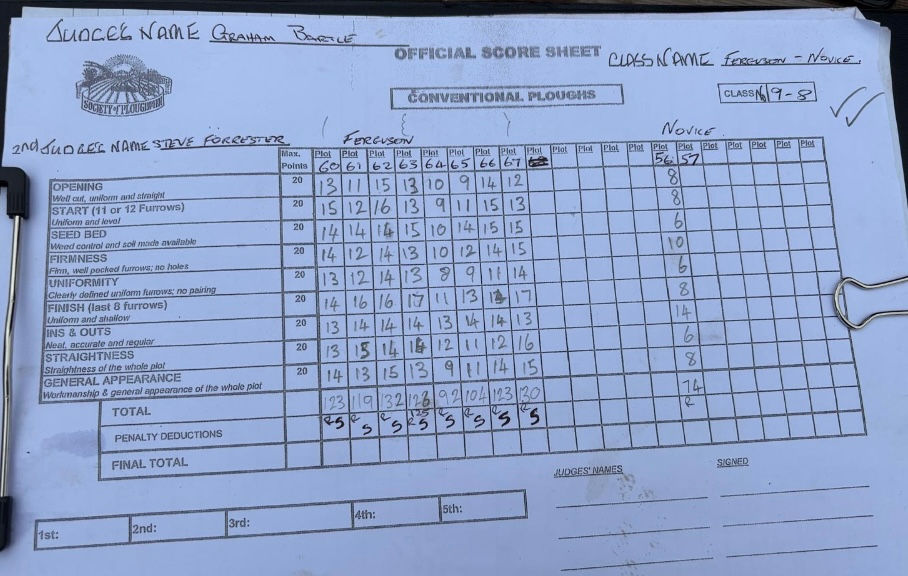 JUDGES NAME GRAHAM BARTLE
OFFICIAL SCORE SHEET
CLASS NAME FERGUSON - NOVICE.
SOCIETY of PLOUGHMEN
CONVENTIONAL PLOUGHS
CLASS No 9-8
2nd JUDGES NAME STEVE FORRESTER FERGUSON NOVICE
Max. Points Plot Plot Plot Plot Plot Plot Plot Plot Plot Plot Plot Plot Plot Plot Plot Plot Plot Plot Plot Plot
60 61 62 63 64 65 66 67 56 57
OPENING 20 13 11 15 13 10 9 14 12 8
Well cut, uniform and straight
START (11 or 12 Furrows) 20 15 12 16 13 9 11 15 13 8
Uniform and level
SEED BED 20 14 14 14 15 10 14 15 15 6
Weed control and soil made available
FIRMNESS 20 14 12 14 13 10 12 14 15 10
Firm, well packed furrows; no holes
UNIFORMITY 20 13 12 14 13 8 9 11 14 6
Clearly defined uniform furrows; no pairing
FINISH (last 8 furrows) 20 14 16 16 17 11 13 17 8
Uniform and shallow
INS & OUTS 20 13 14 14 14 13 14 14 13 14
Neat, accurate and regular
STRAIGHTNESS 20 13 15 14 12 11 12 16 6
Straightness of the whole plot
GENERAL APPEARANCE 20 14 13 15 13 9 11 14 15 8
Workmanship & general appearance of the whole plot
TOTAL 123 119 132 92 104 123 130 74
125
R S R S R S R S R S R S R S R S R
PENALTY DEDUCTIONS
FINAL TOTAL
JUDGES' NAMES SIGNED
1st: 2nd: 3rd: 4th: 5th: